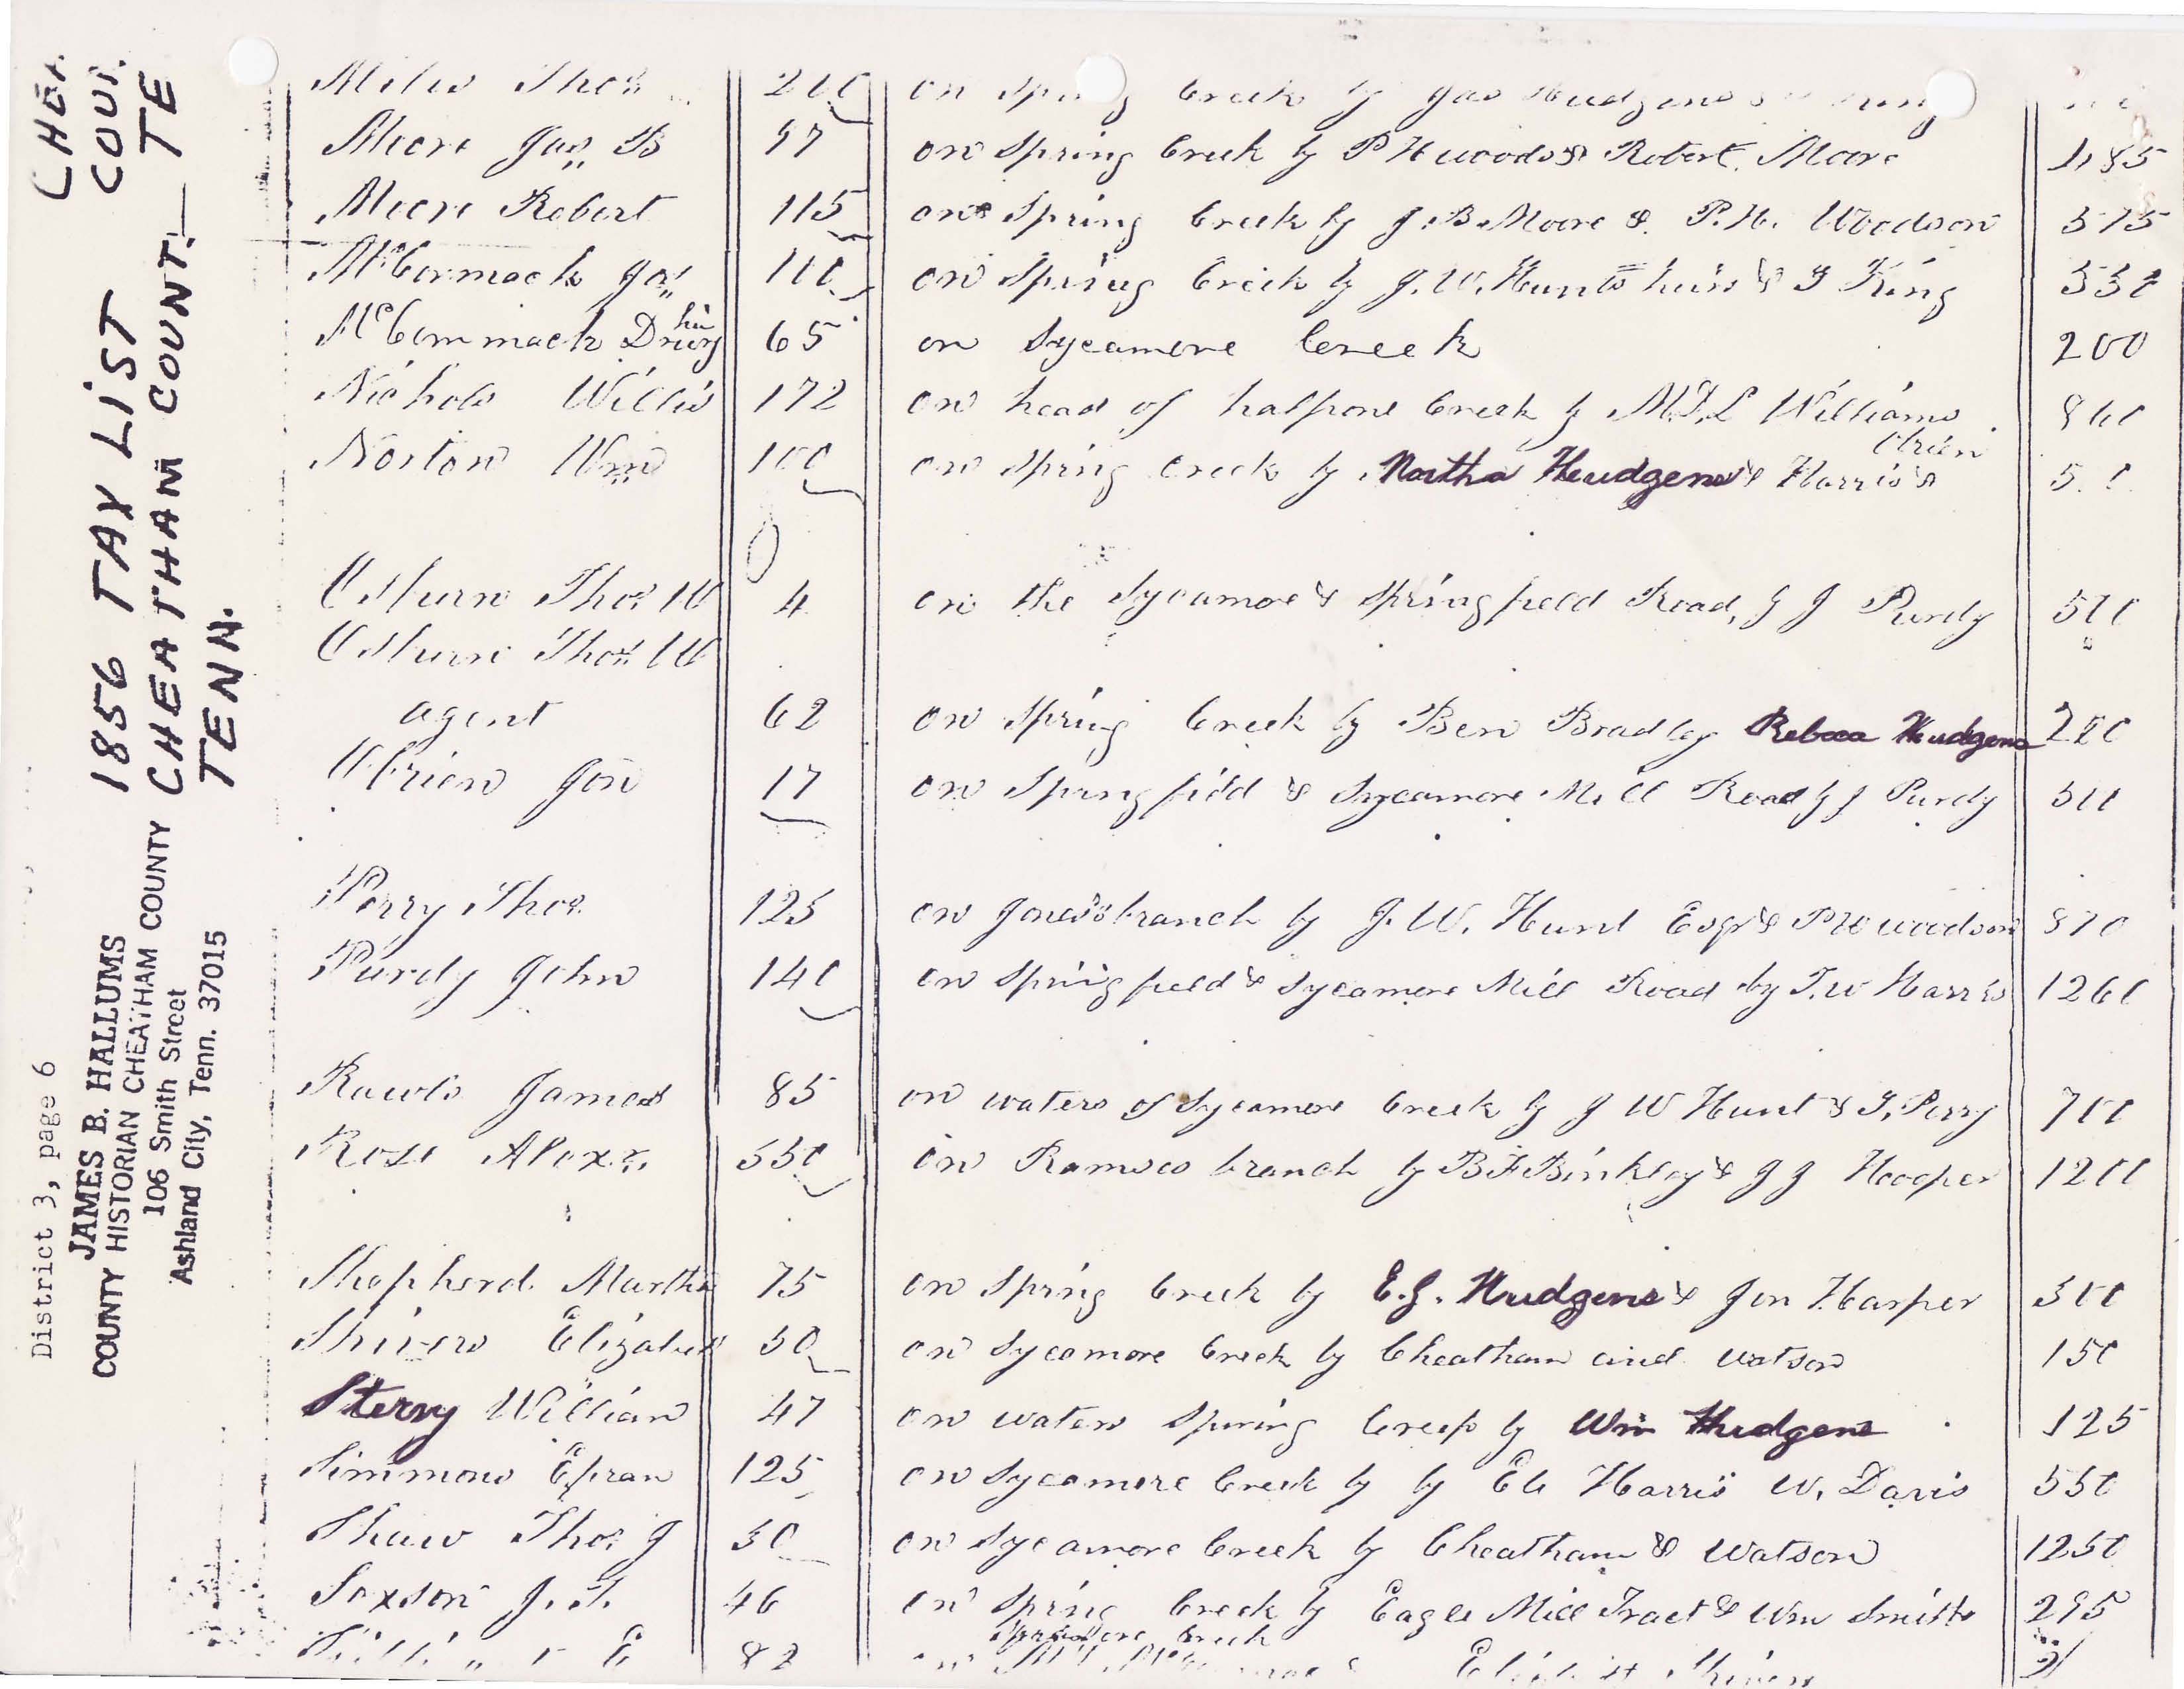 1856 TAX LIST
CHEATHAM COUNTY
TENN.
District 3, page 6
JAMES B. HALLUMS
COUNTY HISTORIAN CHEATHAM COUNTY
106 Smith Street
Ashland City, Tenn. 37015
Miles Thos 200 on Spring Creek by Jas Hudgens
Moore Jas B 97 on Spring Creek by P H woodson Robert Moore 485
Moore Robert 115 on Spring Creek by J. B. Moore & P. H. Woodson 575
McCormack Jas 110 on Spring Creek by J. W. Hunts heirs & T King 550
McCormmack Drury 65 on Sycamore Creek 200
Nichols Willis 172 on head of halfpone Creek by M.T.L Williams 860
Norton Wm 100 on Spring Creek by Martha Hudgens & Harris & Obrien
Osburn Thos W 4 on the Sycamore & Springfield Road, by J Purdy 500
Osburn Thos W
agent 62 on Spring Creek by Ben Bradley Rebeca Hudgens
OBrien Jon 17 on Springfield & Sycamore Mill Road by J Purdy 500
Perry Thos. 125 on Jones's branch by J. W. Hunt Esqr & P H woodson 870
Purdy John 140 on Springfield & Sycamore Mill Road by T. W Harris 1260
Rawls James 85 on waters of Sycamore Creek by J W Hunt & T. Perry 700
Rose Alexr. 350 on Ramseo branch by B F Binkley & J J Hooper 1200
Shepherd Martha 75 on Spring Creek by E. J. Hudgens & Jon Harper 300
Shivers Elizabeth 50 on Sycamore Creek by Cheatham and watson 150
Sterry William 47 on waters Spring Creek by Wm Hudgens 125
Simmons Epran 125 on Sycamore Creek by by Eli Harris W. Davis 550
Shaw Thos J 30 on Sycamore Creek by Cheatham & Watson 1250
Saxson J. T. 46 on Spring Creek by Eagle Mill Tract & Wm Smith 295
82